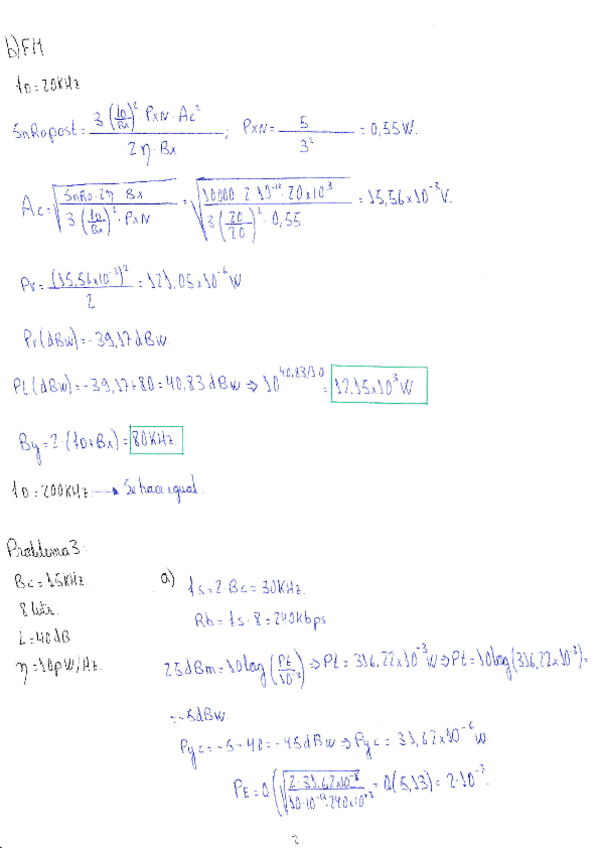 b) FM
fD = 20KHz
SnRopost = 3 (fD/Bx)² · PxN · Ac² / 2η · Bx ; PxN = 5 / 3² = 0,55W.
Ac = √(SnRo · 2η Bx / 3 (fD/Bx)² · PxN) = √(10000 2 10⁻¹² · 20x10³ / 3 (20/20)² · 0,55) = 15,56x10⁻³V.
Pr = (15.56x10⁻³)² / 2 = 121,05x10⁻⁶W
Pr(dBw) = -39,17dBw.
Pt(dBw) = -39,17+80 = 40,83dBw ⇒ 10^40,83/10 = 12,15x10³W
By = 2 (fD+Bx) = 80KHz.
fD = 200KHz → Se hace igual.
Problema 3:
Bc = 15KHz.
8 bits.
L = 40dB
η = 10pW/Hz.
a) fs = 2·Bc = 30KHz.
Rb = fs·8 = 240Kbps
25dBm = 10log(Pt/10⁻³) ⇒ Pt = 316,22x10⁻³W ⇒ Pt = 10log(316,22x10⁻³) =
= -5dBw.
Pyc = -5-40 = -45dBw ⇒ Pyc = 31,62x10⁻⁶W
PE = Q(√(2·31,62x10⁻⁶ / 10·10⁻¹²·240x10⁺³ = Q(5,13) = 2·10⁻⁷.
2.